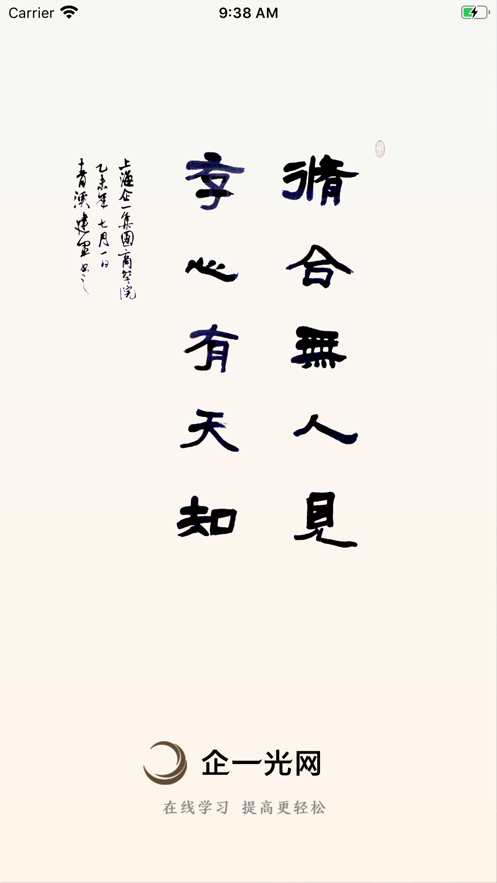 Carrier 9:38 AM
脩合無人見
存心有天知
上海企一集團商學院
乙未年七月一日
青溪建
企一光网
在线学习 提高更轻松